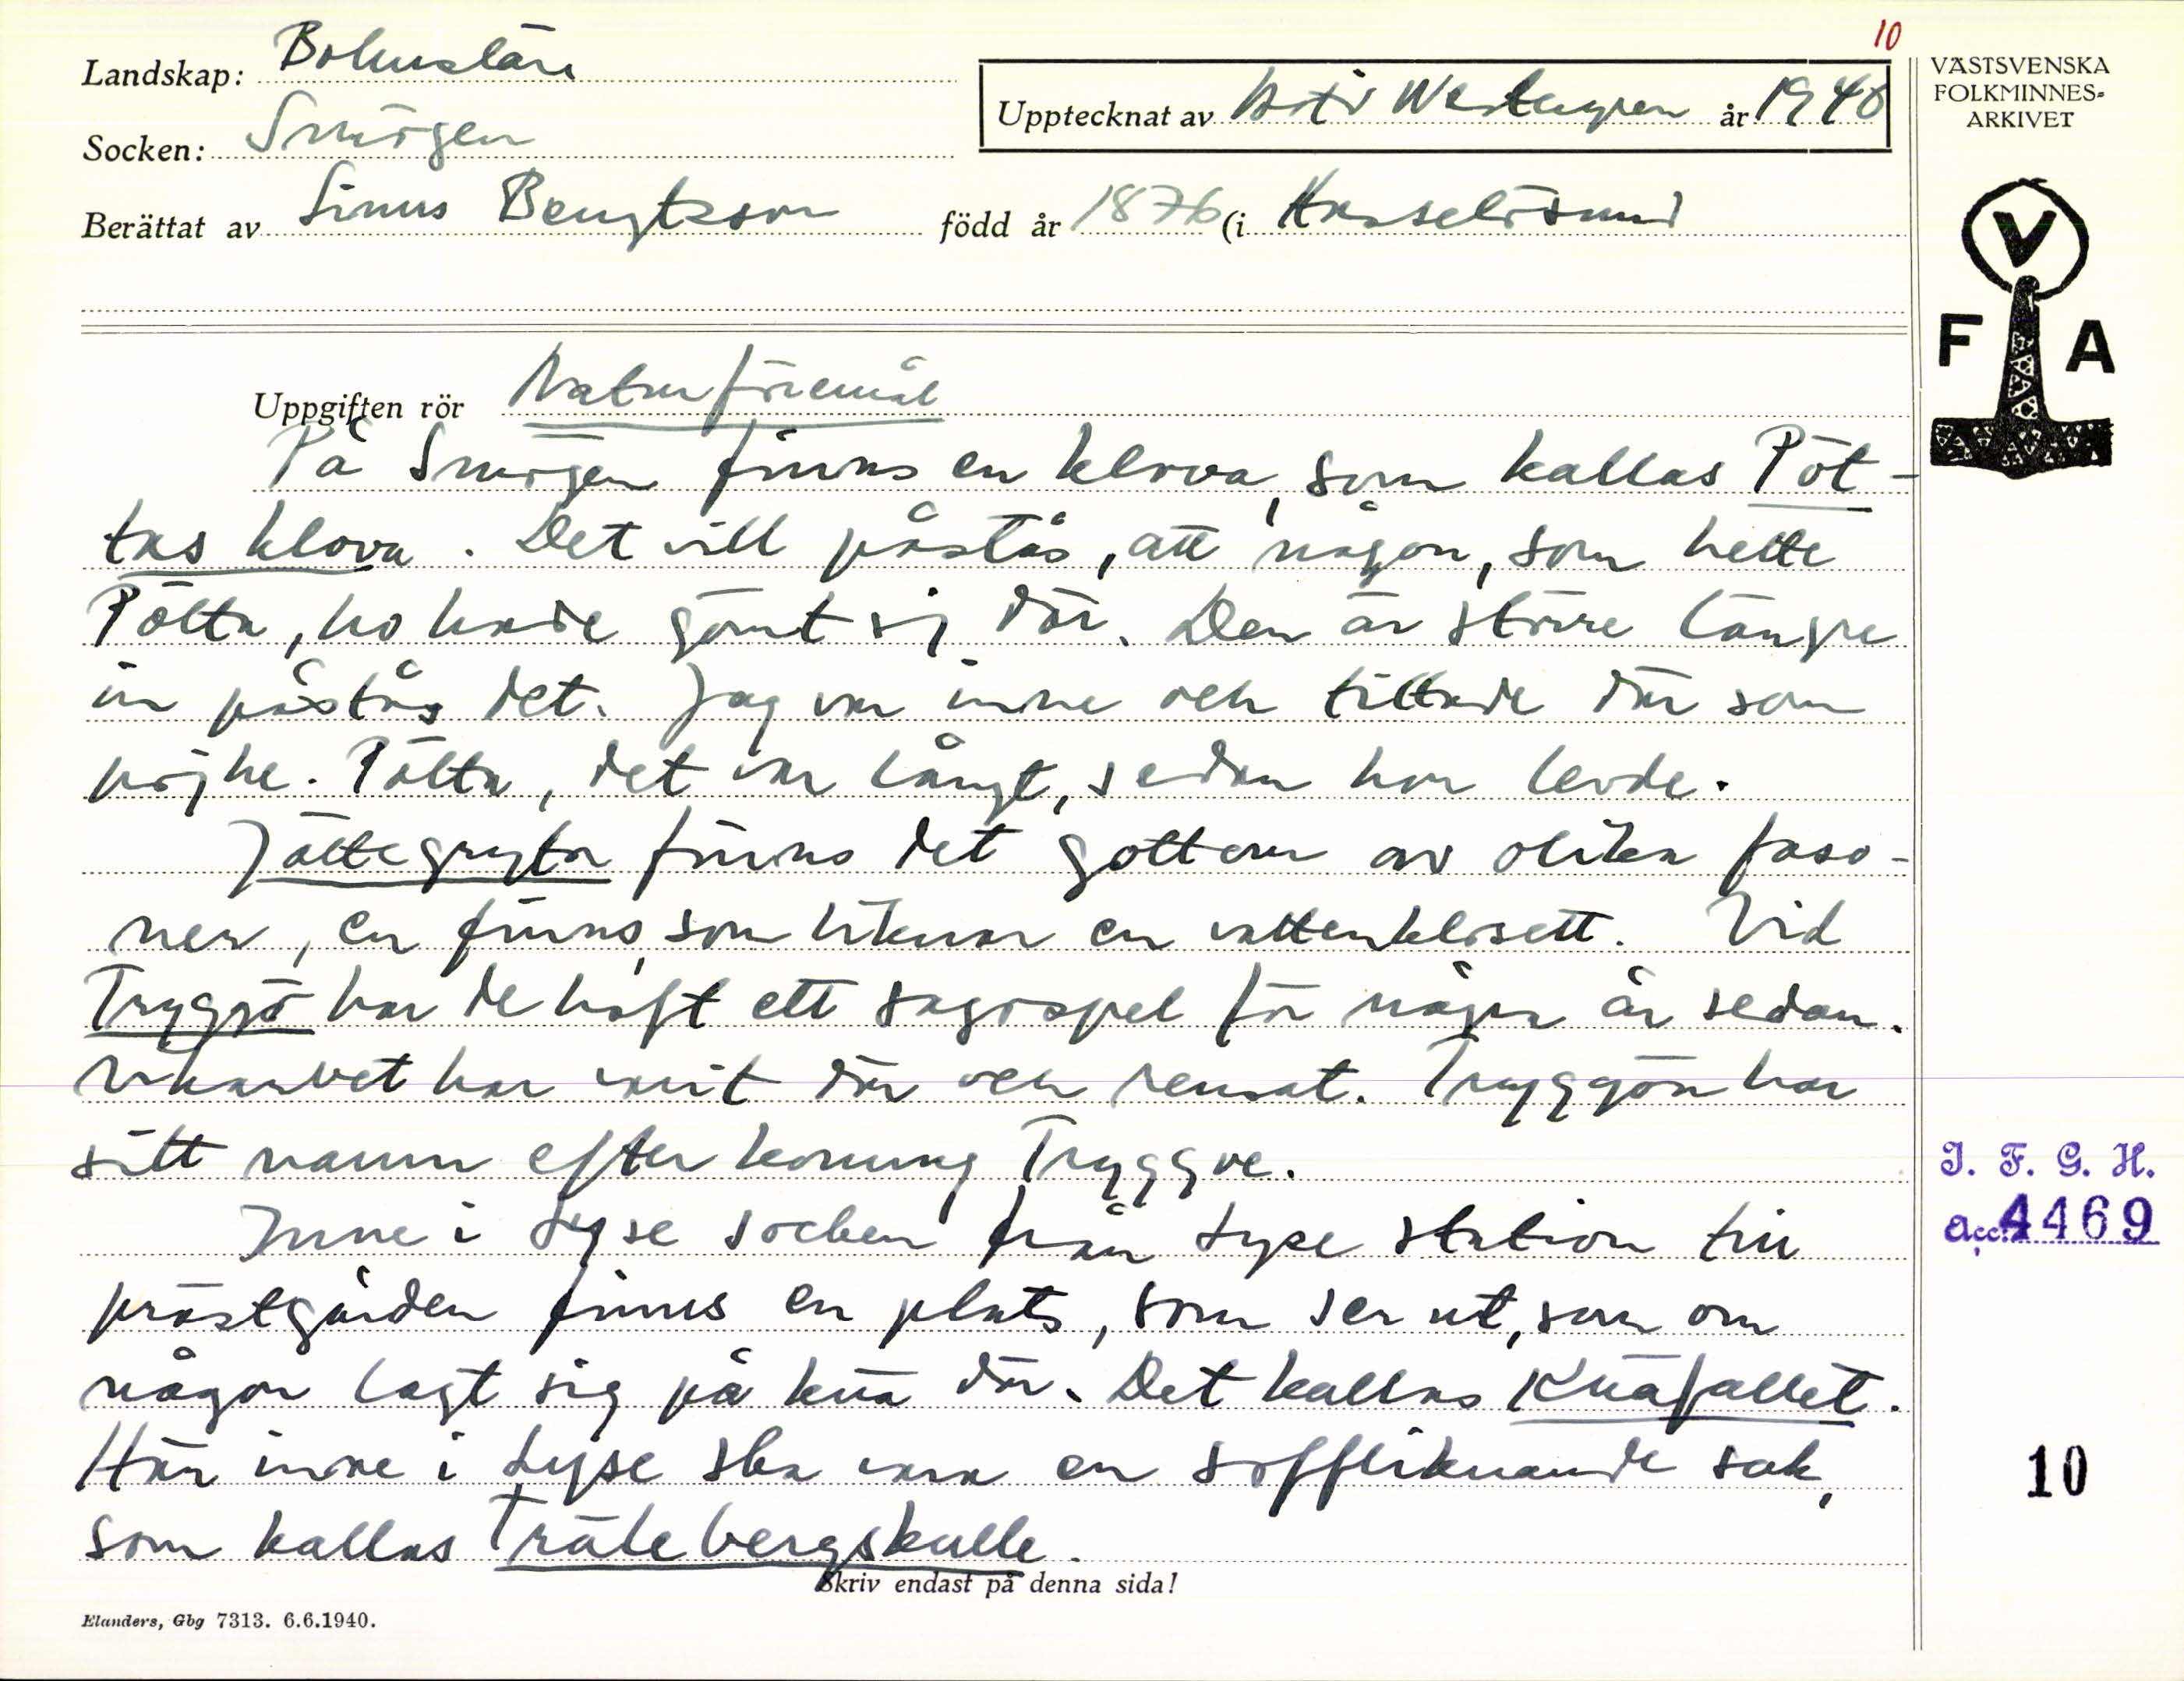 10
Landskap: Bohuslän
Upptecknat av Astrid Westergren år 1940
Socken: Smögen
Berättat av Linus Bengtsson född år 1876 (i Hasselösund
VÄSTSVENSKA
FOLKMINNES-
ARKIVET
V
F A
Uppgiften rör Naturföremål
På Smögen finns en klova, som kallas Pöt-
tas klova. Det vill påstås, att någon, som hette
Pötta, ho hade gömt sig där. Den är större längre
in påstås det. Jag var inne och tittade där som
pojke. Pötta, det var långt, sedan hon levde.
Jättegrytor finns det gottom av olika faso-
ner, en finns, som liknar en vattenklosett. Vid
Tryggö har de haft ett sagospel för några år sedan.
har varit där och rensat. Tryggön har
sitt namn efter konung Tryggve.
Inne i Lyse socken från Lyse station till
prästgården finns en plats, som ser ut, som om
någon lagt sig på knä där. Det kallas Knäfallet.
Här inne i Lyse ska vara en soffliknande sak,
som kallas Trälebergskulle.
Skriv endast på denna sida!
Elanders, Gbg 7313. 6.6.1940.
I. F. G. H.
Acc. 4469
10